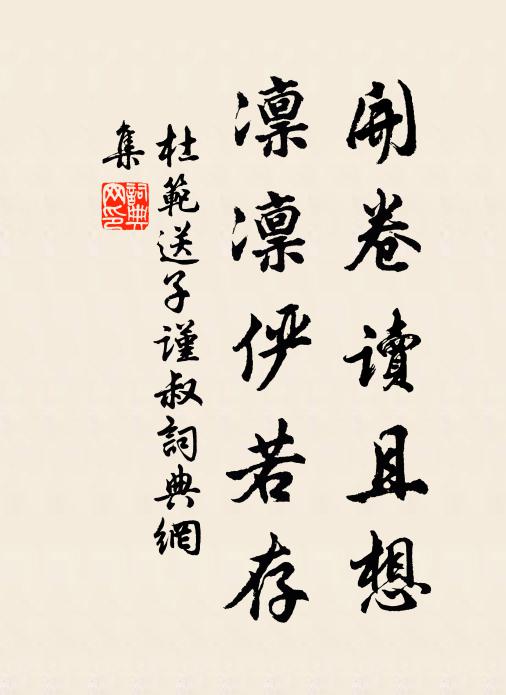 開卷讀且想
凛凛俨若存
杜範送子謹叔詞典網
集
詞典
网印